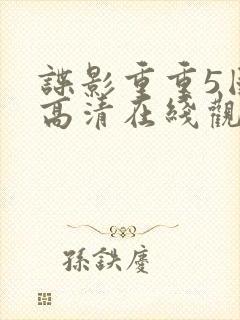 諜影重重5
高清在綫觀
孫鉄慶